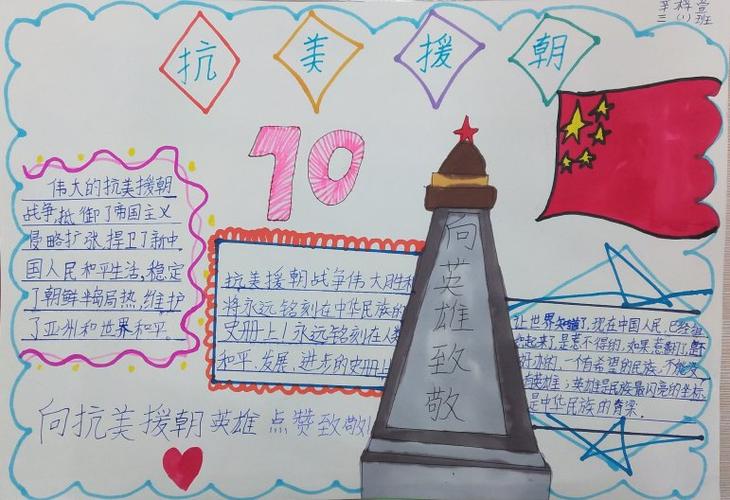 三(1)班
抗美援朝
70
伟大的抗美援朝
战争抵御了帝国主义
侵略扩张,捍卫了新中
国人民和平生活,稳定
了朝鲜半岛局热,维护
了亚洲和世界和平。
抗美援朝战争伟大胜利
将永远铭刻在中华民族的
史册上!永远铭刻在人类
和平、发展、进步的史册上
向英雄致敬
让世界知道了,现在中国人民已经组
起来了,是惹不得的,如果惹翻了,是不
好办的,一个有希望的民族,不能没
有英雄;英雄是民族最闪亮的坐标,
是中华民族的脊梁。
向抗美援朝英雄点赞致敬!